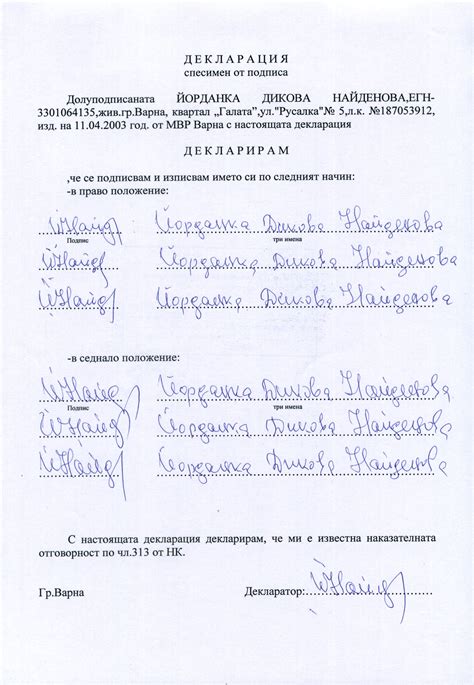 ДЕКЛАРАЦИЯ
спесимен от подписа
Долуподписаната ЙОРДАНКА ДИКОВА НАЙДЕНОВА,ЕГН-
3301064135,жив.гр.Варна, квартал „Галата”,ул."Русалка"№ 5,л.к. №187053912,
изд. на 11.04.2003 год. от МВР Варна с настоящата декларация
ДЕКЛАРИРАМ
,че се подписвам и изписвам името си по следният начин:
-в право положение:
ЙНайд Йорданка Дикова Найденова
Подпис три имена
ЙНайд Йорданка Дикова Найденова
ЙНайд Йорданка Дикова Найденова
-в седнало положение:
ЙНайд Йорданка Дикова Найденова
Подпис три имена
ЙНайд Йорданка Дикова Найденова
ЙНайд Йорданка Дикова Найденова
С настоящата декларация декларирам, че ми е известна наказателната
отговорност по чл.313 от НК.
Гр.Варна Декларатор: ЙНайд